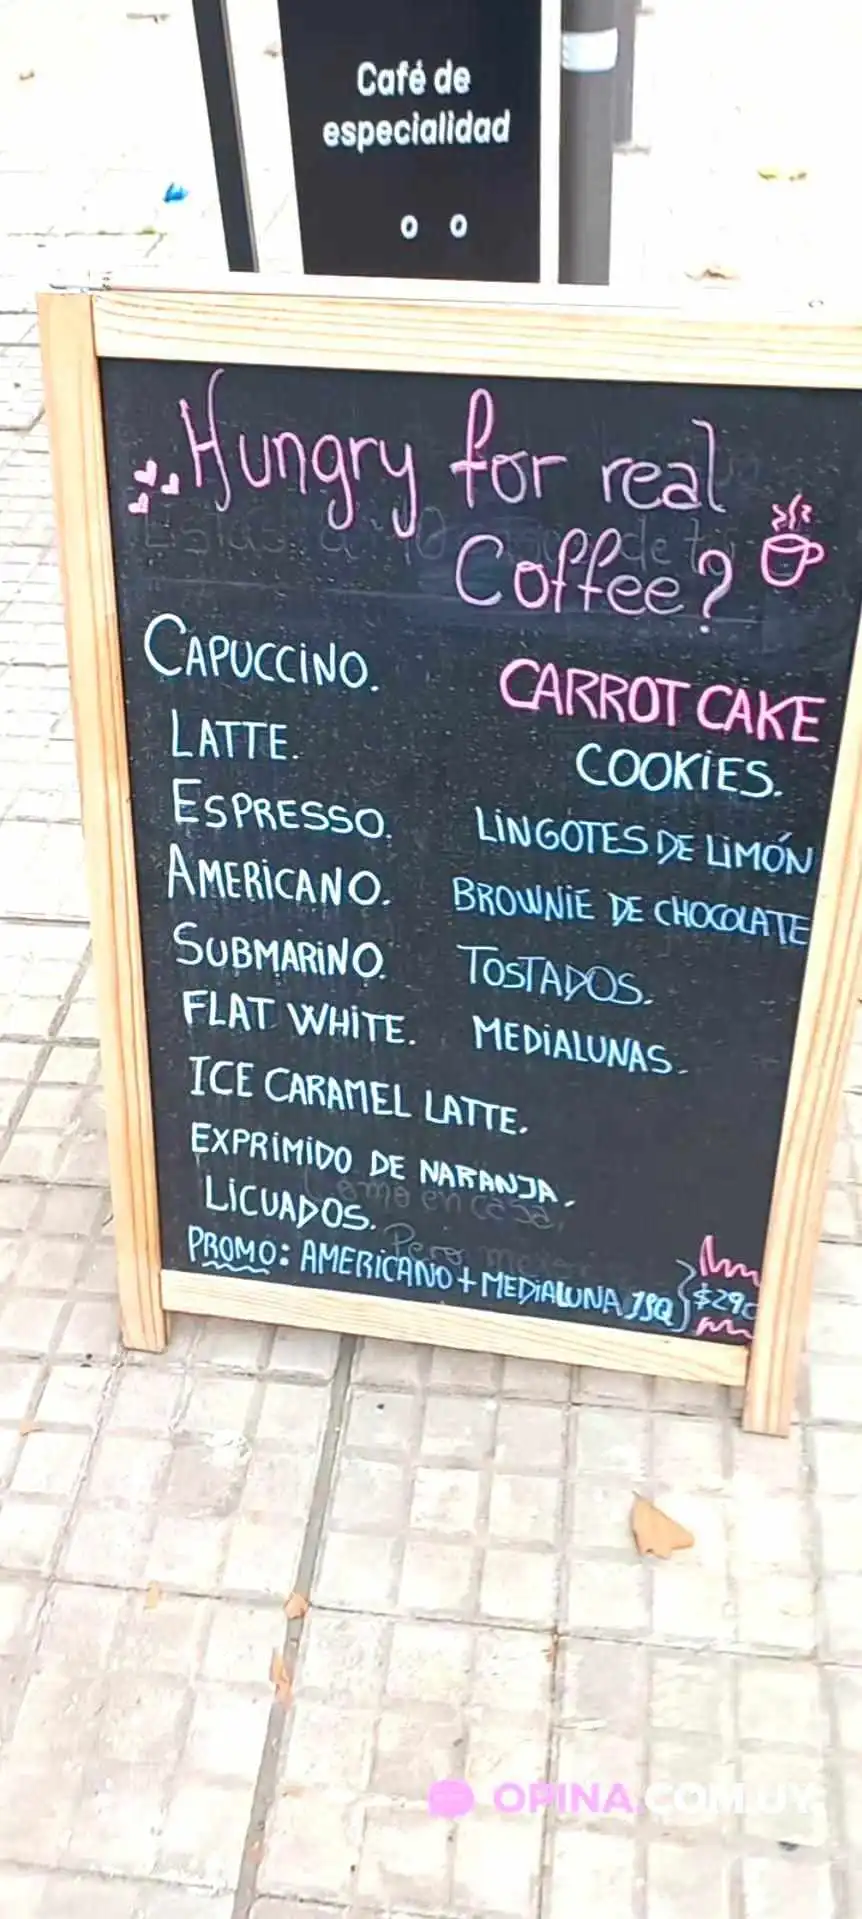 Café de
especialidad
Hungry for real
Coffee?
CAPUCCINO.
LATTE.
ESPRESSO.
AMERICANO.
SUBMARINO.
FLAT WHITE.
ICE CARAMEL LATTE.
EXPRIMIDO DE NARANJA.
LICUADOS.
CARROT CAKE
COOKIES.
LINGOTES DE LIMÓN
BROWNIE DE CHOCOLATE
TOSTADOS.
MEDIALUNAS.
PROMO: AMERICANO + MEDIALUNA JSQ
OPINA.COM.UY